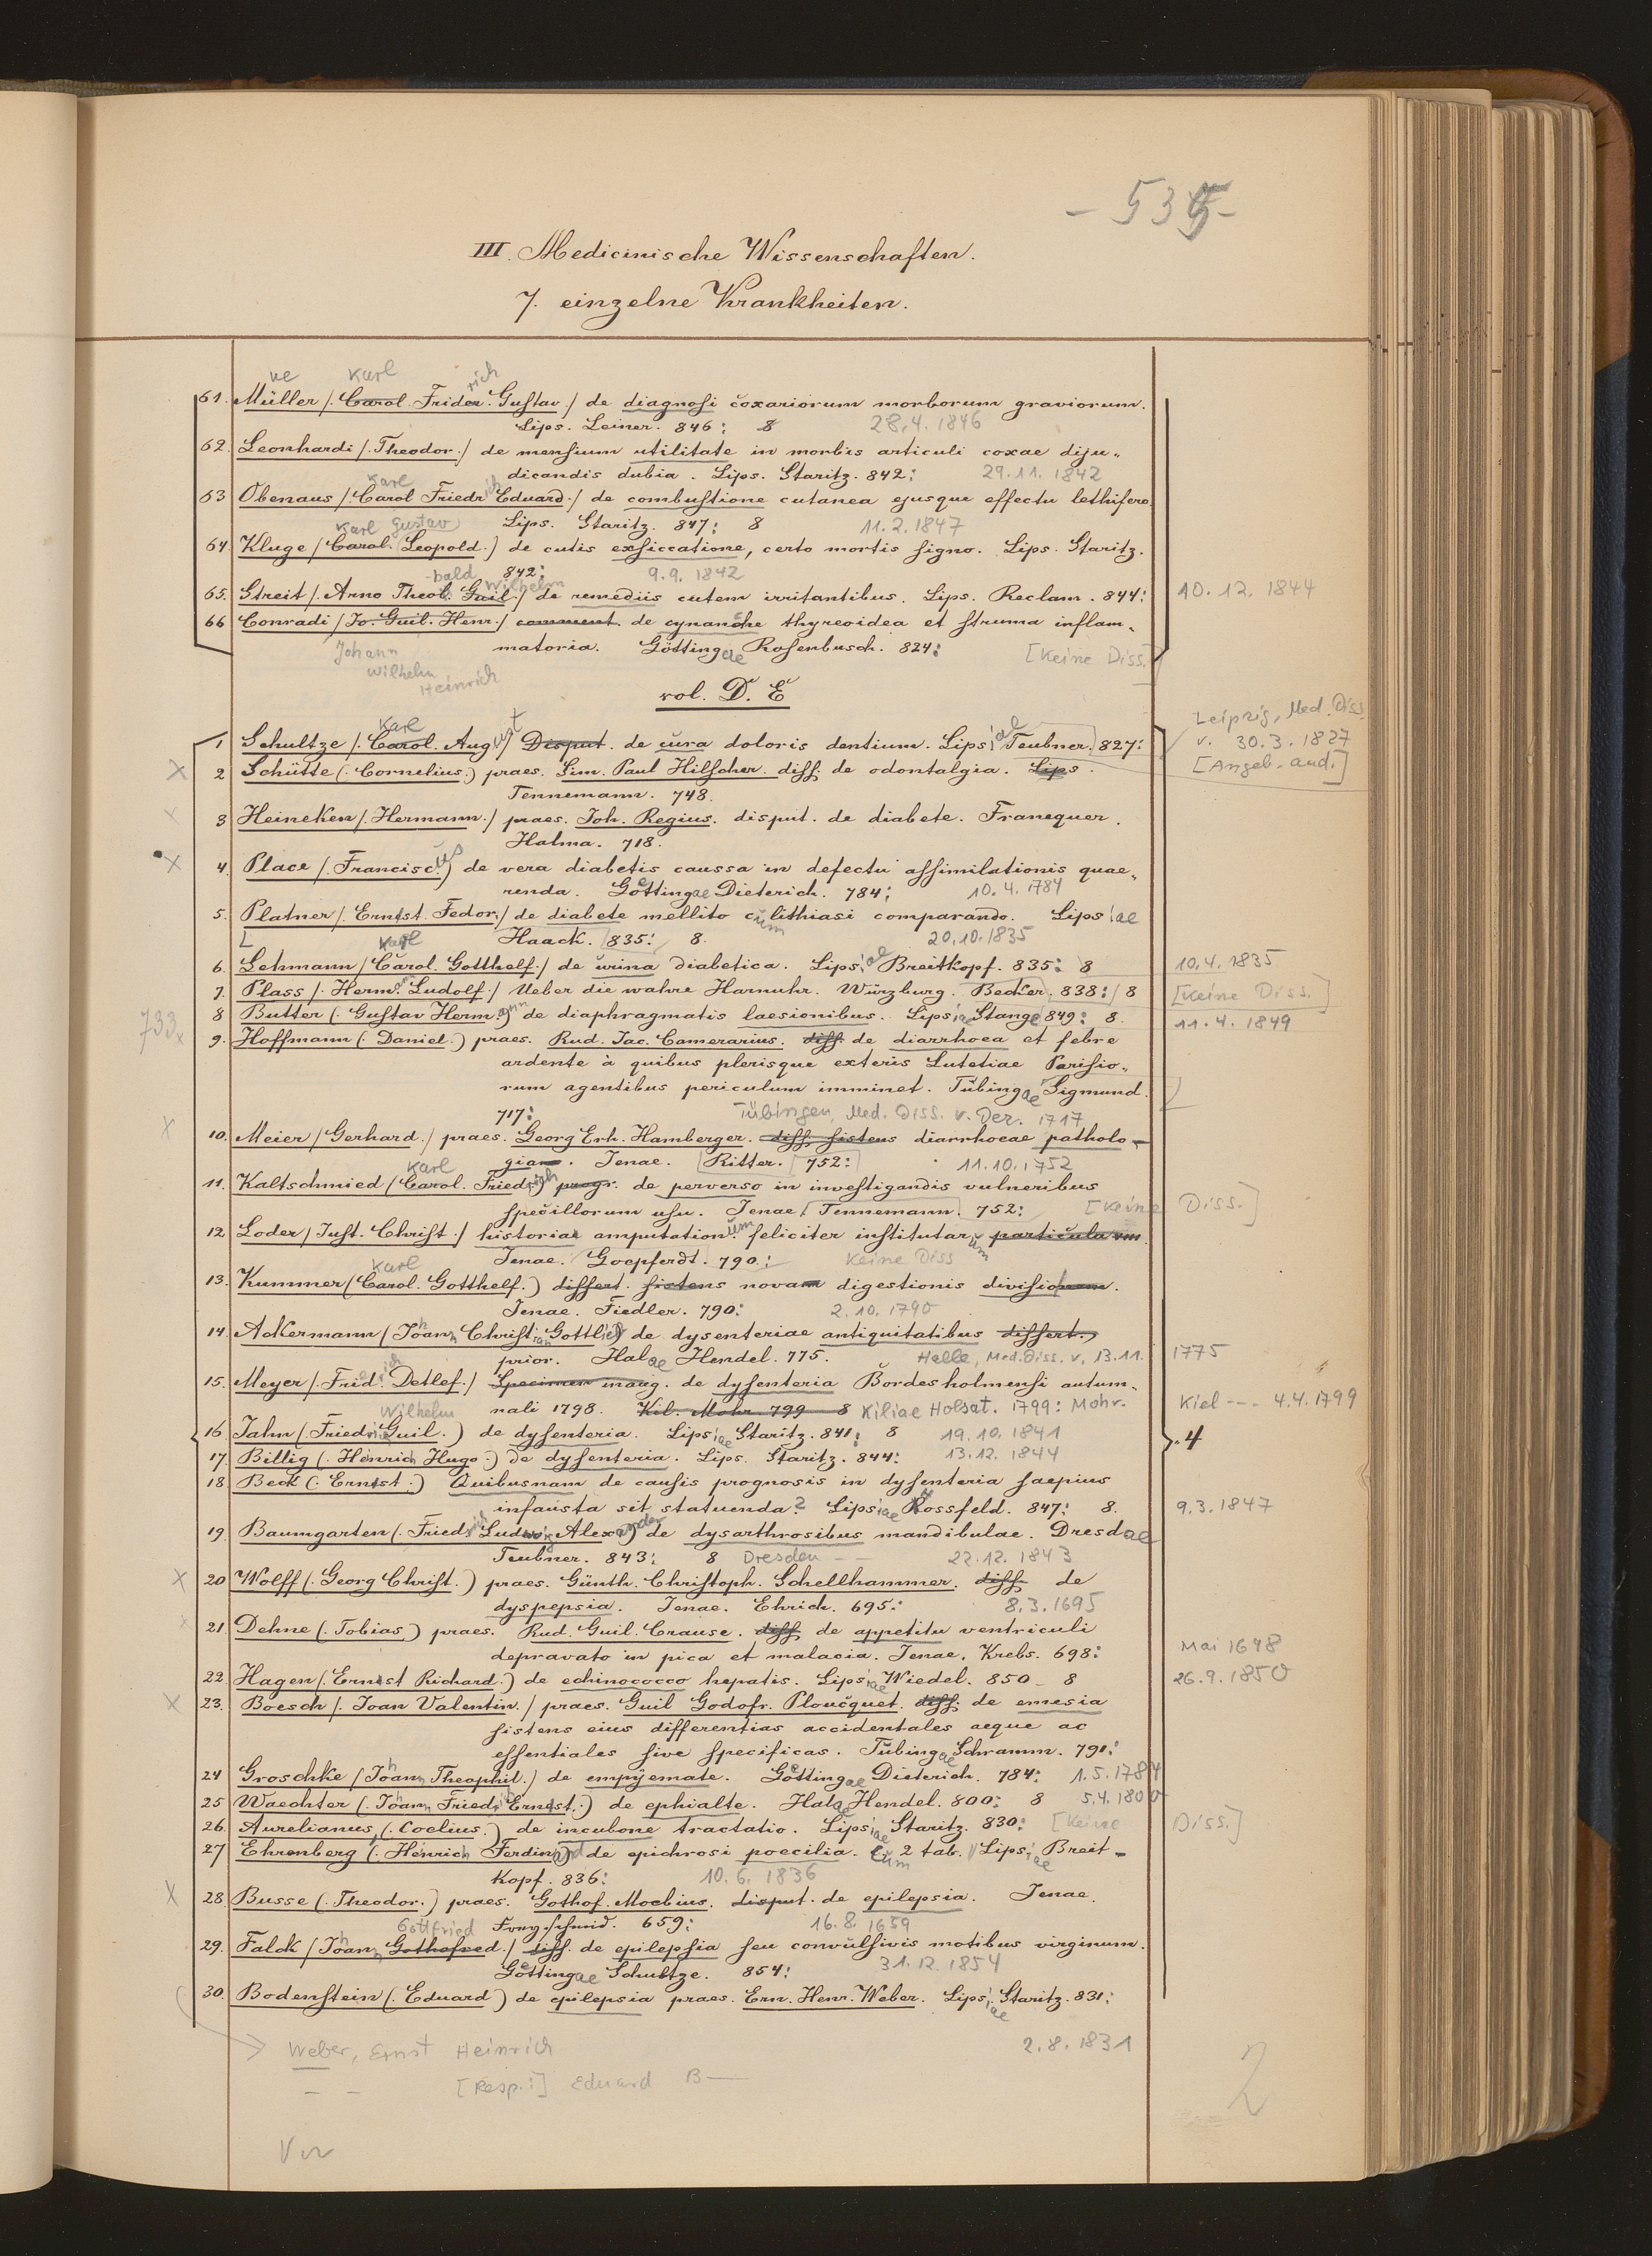 - 535 -
III. Medicinische Wissenschaften.
7. einzelne Krankheiten.
ue Karl rich
61. Müller /. Carol. Frider. Gustav / de diagnosi coxariorum morborum graviorum.
Lips. Leiner. 846: 8 28.4.1846
62. Leonhardi /. Theodor. / de mensium utilitate in morbis articuli coxae diju„
dicandis dubia. Lips. Staritz. 842: 29.11.1842
Karl
63 Obenaus /. Carol Friedrich Eduard. / de combustione cutanea ejusque effectu lethifero
Lips. Staritz. 847: 8 11.2.1847
Karl Gustav
64 Kluge / Carol. Leopold. / de cutis exsiccatione, certo mortis signo. Lips. Staritz.
842: 9.9.1842
-bald Wilhelm
65. Streit /. Arno Theob. Guil. / de remediis cutem irritantibus. Lips. Reclam. 844: 10.12.1844
66 Conradi / Jo. Guil. Henr. / comment. de cynanche thyreoidea et struma inflam„
matoria. Göttingae Rosenbusch. 824: [Keine Diss.]
Johann
Wilhelm
Heinrich
vol. D. E
Leipzig, Med. Diss.
v. 30.3.1827
[Angeb. and.]
Karl
1 Schultze /. Carol. August / Disput. de cura doloris dentium. Lipsiae Teubner. 827:
x 2 Schütte (. Cornelius.) praes. Sim. Paul Hilscher. diss. de odontalgia. Lips.
Tennemann. 748.
x 3 Heineken /. Hermann. / praes. Joh. Regius. disput. de diabete. Franequer.
Halma. 718.
x 4. Place /. Franciscus) de vera diabetis caussa in defectu assimilationis quae„
renda. Goettingae Dieterich. 784: 10.4.1784
5. Platner /. Ernst. Fedor. / de diabete mellito cum lithiasi comparando. Lipsiae
Haack. 835: 8. 20.10.1835
Karl
6. Lehmann / Carol. Gotthelf. / de urina diabetica. Lipsiae Breitkopf. 835: 8 10.4.1835
7. Plass /. Herm. Ludolf. / Ueber die wahre Harnuhr. Würzburg. Becker. 838: 8 [Keine Diss.]
8 Butter (. Gustav Hermann) de diaphragmatis laesionibus. Lipsiae Stange 849: 8. 11.4.1849
733x 9. Hoffmann (. Daniel.) praes. Rud. Jac. Camerarius. diss. de diarrhoea et febre
ardente à quibus plerisque exteris Lutetiae Parisio„
rum agentibus periculum imminet. Tübingae Sigmund.
717: Tübingen, Med. Diss. v. Dez. 1717
x 10. Meier / Gerhard. / praes. Georg Erh. Hamberger. diss. sistens diarrhoeae patholo-
giam. Jenae. Ritter. 752: 11.10.1752
Karl
11. Kaltschmied (Carol. Friedrich) progr. de perverso in investigandis vulneribus
specillorum usu. Jenae. Tennemann. 752: [Keine Diss.]
12 Loder / Just. Christ. / historiae amputationum feliciter institutarum particula VIII.
Jenae. Goepferdt. 790: Keine Diss
Karl
13. Kummer (Carol. Gotthelf.) dissert. sistens novam digestionis divisionem.
Jenae. Fiedler. 790: 2.10.1790
14. Ackermann (Johann Christian Gottlieb) de dysenteriae antiquitatibus dissert.
prior. Halae Hendel. 775. Halle, Med. Diss. v. 13.11. 1775
15. Meyer /. Friedrich Detlef. / Specimen inaug. de dysenteria Bordesholmensi autum„
nali 1798. Kil. Mohr 799 8 Kiliae Holsat. 1799: Mohr. Kiel --- 4.4.1799
Wilhelm
16. Jahn (. Friedrich Guil.) de dysenteria. Lipsiae Staritz. 841: 8 19.10.1841 4
17. Billig (. Heinrich Hugo.) de dysenteria. Lips. Staritz. 844: 13.12.1844
18 Beck (. Ernst.) Quibusnam de causis prognosis in dysenteria saepius
infausta sit statuenda? Lipsiae Rossfeld. 847: 8. 9.3.1847
19. Baumgarten (. Friedrich Ludwig Alexander) de dysarthrosibus mandibulae. Dresdae
Teubner. 843: 8 Dresden -- 22.12.1843
x 20 Wolff (. Georg Christ.) praes. Günth. Christoph. Schellhammer. diss. de
dyspepsia. Jenae. Ehrich. 695: 8.3.1695
x 21. Dehne (. Tobias) praes. Rud. Guil. Crause. diss. de appetitu ventriculi
depravato in pica et malacia. Jenae. Krebs. 698: Mai 1698
22. Hagen (. Ernst Richard.) de echinococco hepatis. Lipsiae Wiedel. 850 - 8 26.9.1850
x 23. Boesch /. Joan Valentin. / praes. Guil Godofr. Ploucquet. diss. de emesia
sistens eius differentias accidentales aeque ac
essentiales sive specificas. Tübingae Schramm. 791:
24 Groschke / Johann Theophil. / de empyemate. Goettingae Dieterich. 784: 1.5.1784
25 Waechter (. Johann Friedrich Ernst.) de ephialte. Halae Hendel. 800: 8 5.4.1800
26. Aurelianus, (. Coelius.) de incubone tractatio. Lipsiae Staritz. 830: [Keine Diss.]
27 Ehrenberg (. Heinrich Ferdinand) de epichrosi poecilia. cum 2 tab. Lipsiae Breit-
kopf. 836: 10.6.1836
x 28. Busse (. Theodor.) praes. Gothof. Moebius. disput. de epilepsia. Jenae.
Freyschmid. 659: 16.8.1659
Gottfried
29. Falck / Johann Gothofred. / diss. de epilepsia seu convulsivis motibus virginum.
Goettingae Schultze. 854: 31.12.1854
30. Bodenstein (. Eduard) de epilepsia praes. Ern. Henr. Weber. Lipsiae Staritz. 831:
Weber, Ernst Heinrich 2.8.1831
- - [Resp.:] Eduard B—
2